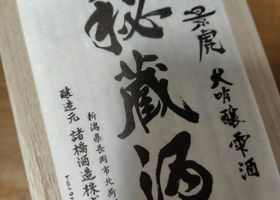 景虎 大吟醸雫酒
秘蔵酒
新潟県長岡市北荷
醸造元 諸橋酒造株